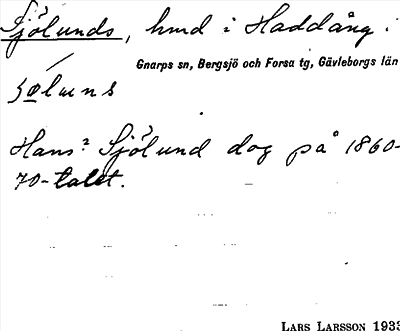 Sjölunds, hmd i Haddång.
Gnarps sn, Bergsjö och Forsa tg, Gävleborgs län
Hans? Sjölund dog på 1860-
70-talet.
LARS LARSSON 1933